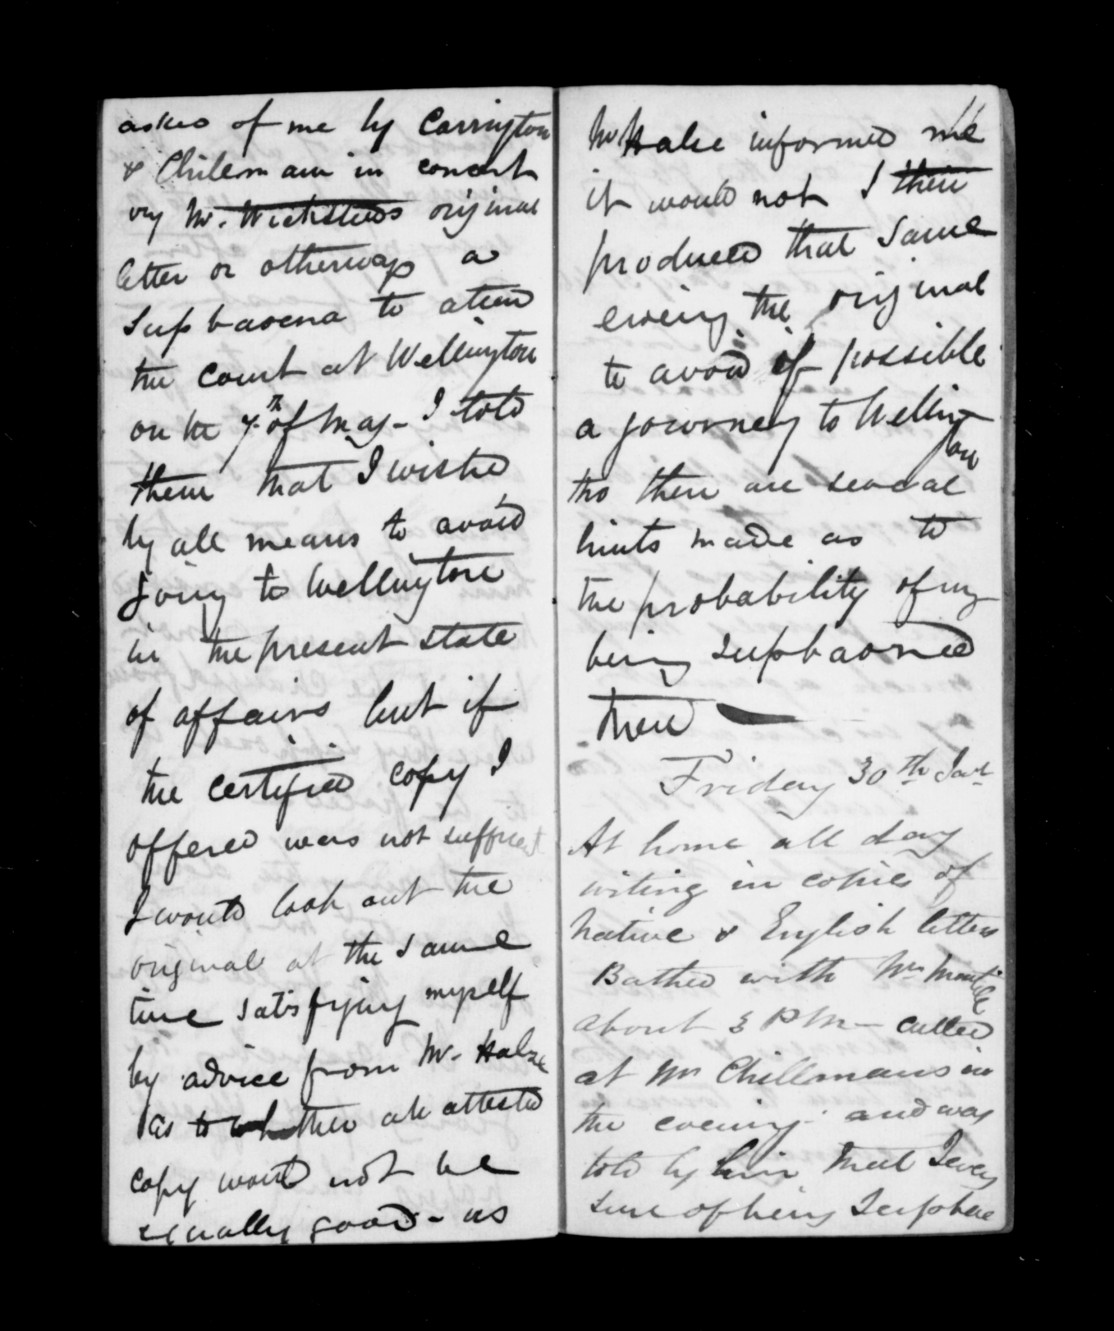 asked of me by Carrington
& Chilemain in concert
my Mr. Wicksteeds original
letter or otherways a
Supbaoena to atten
the court at Wellington
on the 7th of May - I told
them that I wishd
by all means to avoid
going to Wellington
in the present state
of affairs but if
the certified copy I
offered was not sufficent
I would look out the
original at the same
time satisfying myself
by advice from Mr. Halse
as to whether an attested
copy would not be
equally good - as
11
Mr Halse informed me
it would not I then
produced that same
evening the original
to avoid if possible
a journey to Welling
ton
tho there are several
hints made as to
the probability of my
being Supbaoned
there
Friday 30th Jan
At home all day
writing in copies of
Native & English letters
Bathed with Mr
about 3 PM - called
at Mr Chillmans in
the evening and was
told by him that I was
sure of being Supbae